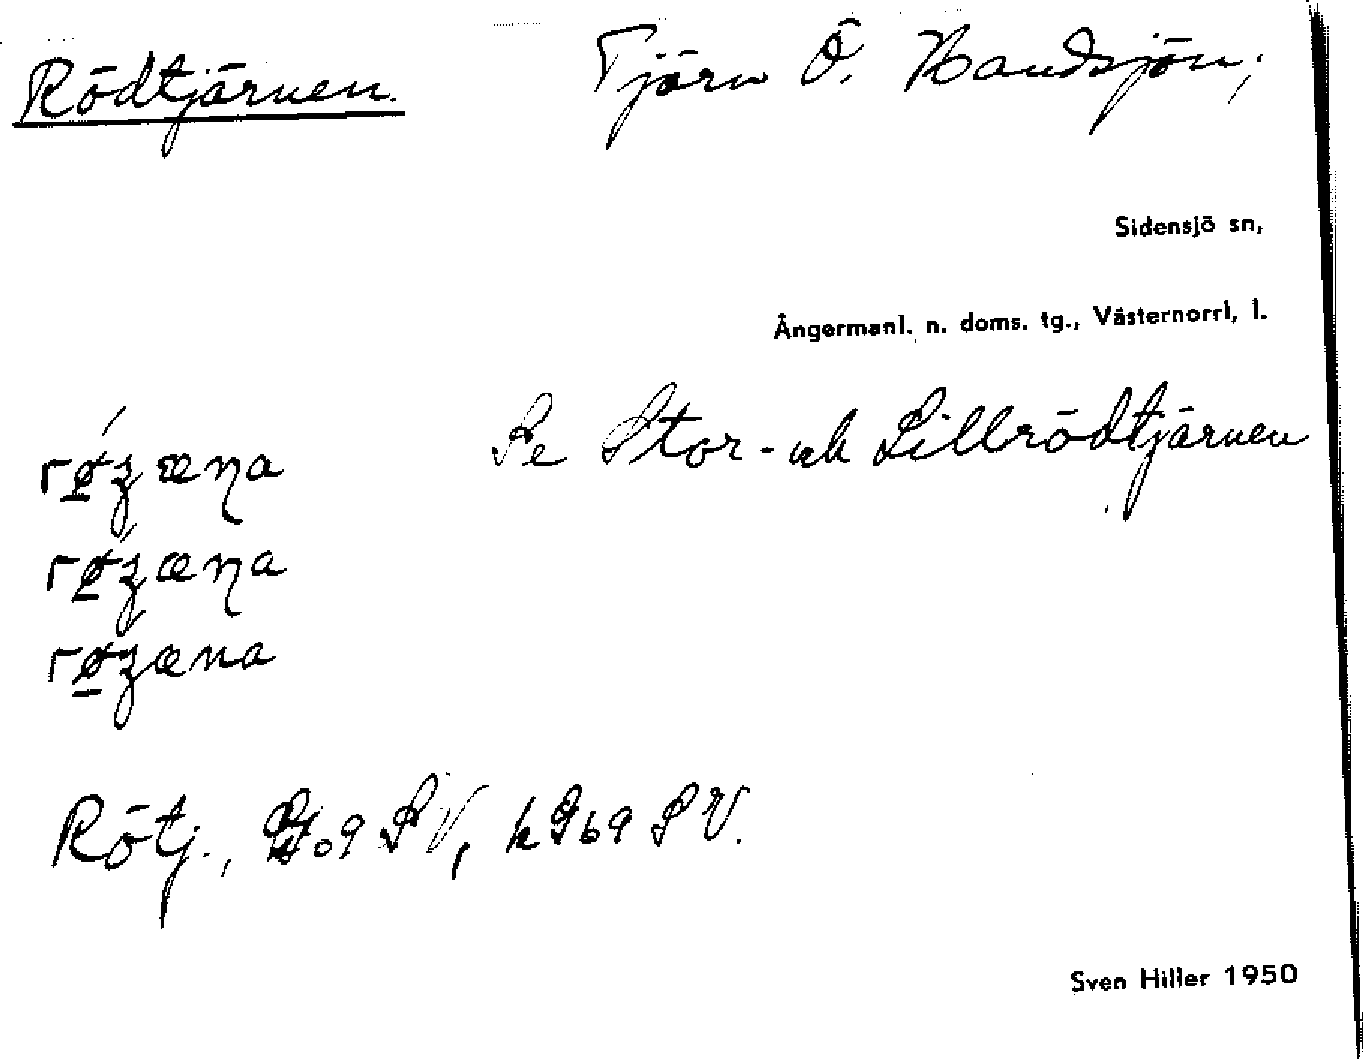 Rödtjärnen. Tjärn Ö. Handsjön;
Sidensjö sn,
Ångermanl. n. doms. tg., Västernorrl, l.
Se Stor- och Lillrödtjärnen
Rötj., SV, k969 SV.
Sven Hiller 1950